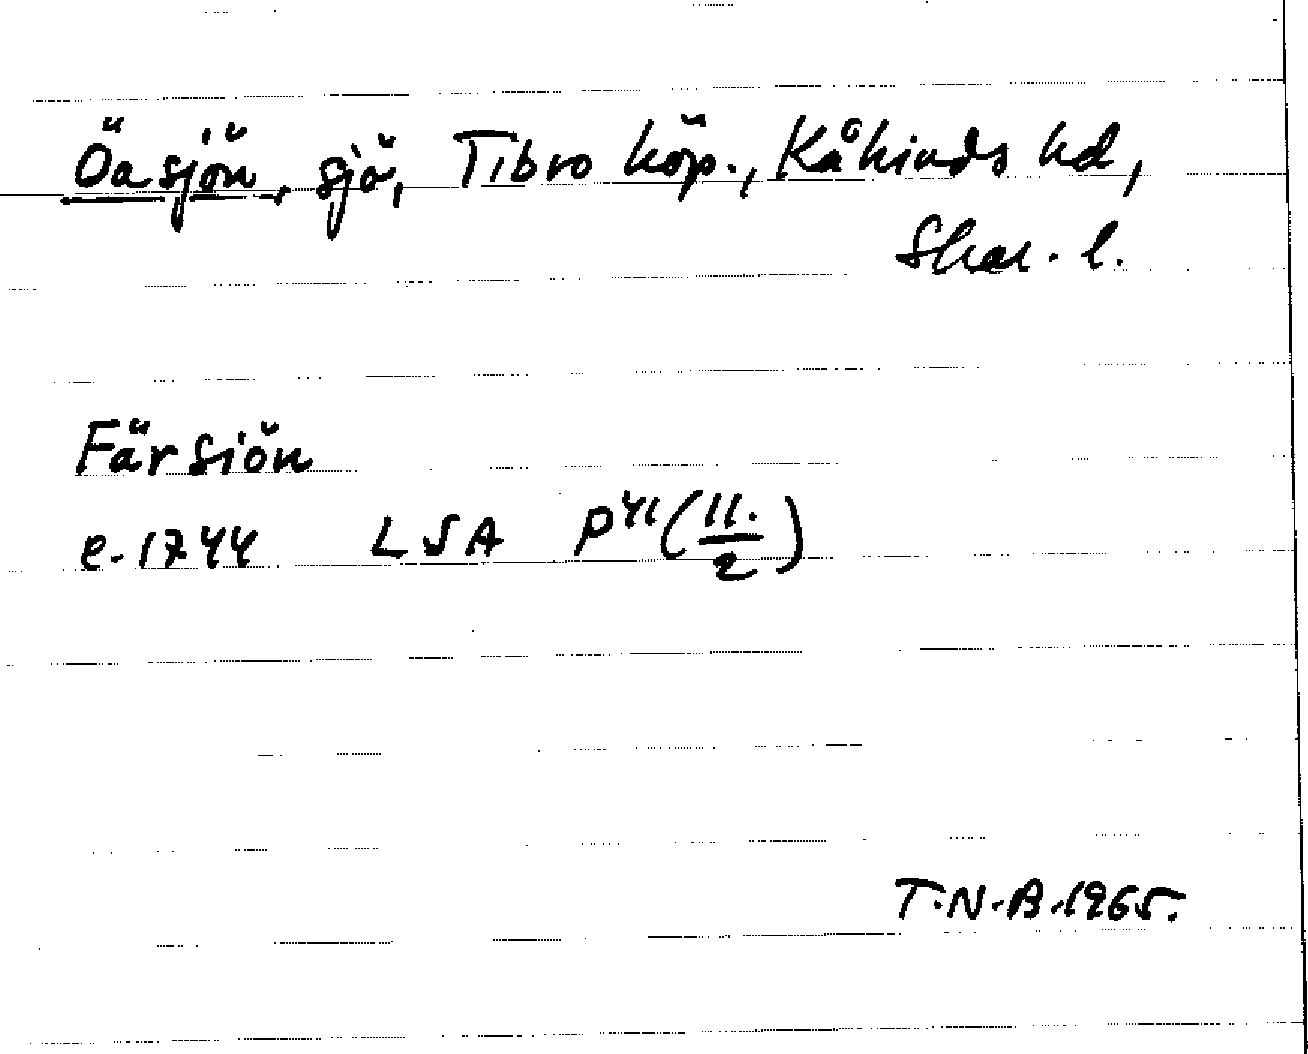 Öasjön, sjö, Tibro köp., Kåkinds hd,
Skar. l.
Färsiön
e. 1744 LSA P41(11./2)
T.N.B. 1965.